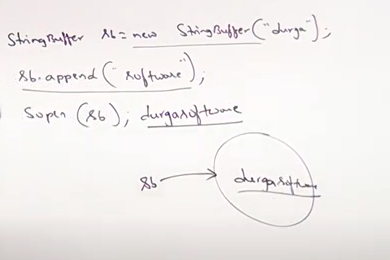 StringBuffer sb = new StringBuffer("durga");
sb.append("software");
Sopln (sb); durgasoftware
sb → durgasoftware